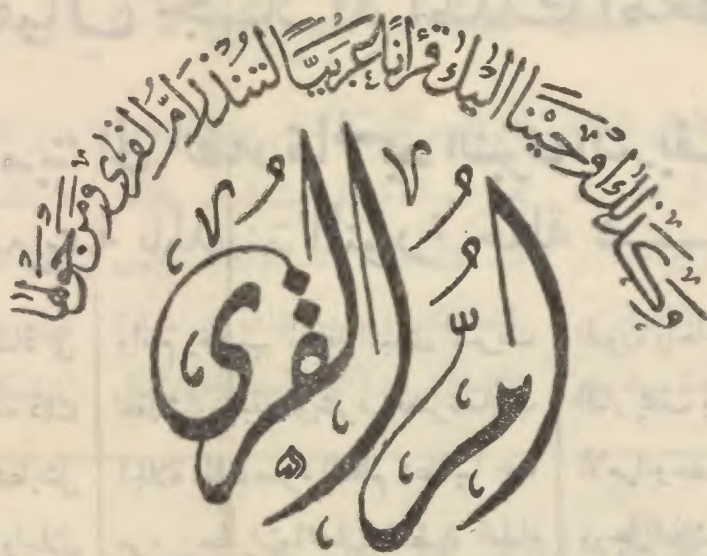 وَكَذَٰلِكَ أَوْحَيْنَا إِلَيْكَ قُرْآنًا عَرَبِيًّا لِتُنْذِرَ أُمَّ الْقُرَى وَمَنْ حَوْلَهَا
أُمُّ الْقُرَى